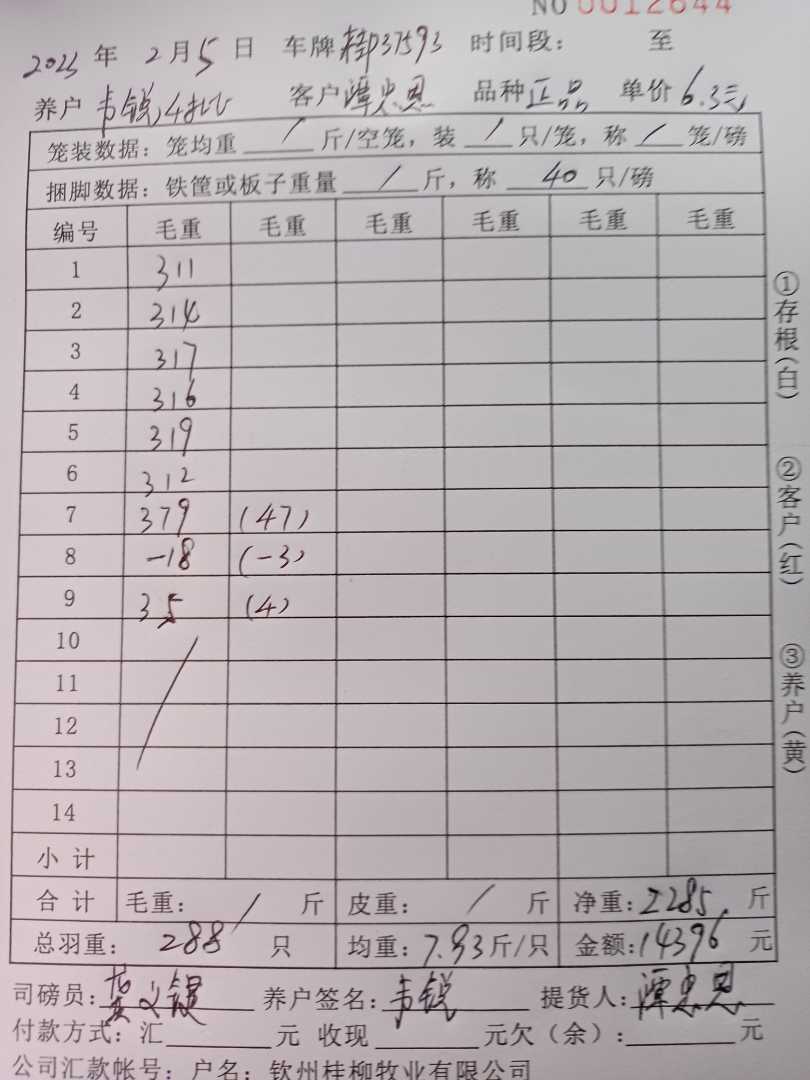 NO 0012644
2023 年 2 月 5 日 车牌 桂D37593 时间段: 至
养户 韦锐 客户 谭忠恩 品种 正品 单价 6.3元
笼装数据: 笼均重 / 斤/空笼, 装 / 只/笼, 称 / 笼/磅
捆脚数据: 铁筐或板子重量 / 斤, 称 40 只/磅
编号 毛重 毛重 毛重 毛重 毛重 毛重
1 311
2 314
3 317
4 316
5 319
6 312
7 379 (47)
8 -18 (-3)
9 35 (4)
10
11
12
13
14
小 计
合 计 毛重: / 斤 皮重: / 斤 净重: 2285 斤
总羽重: 288 只 均重: 7.93 斤/只 金额: 14396 元
司磅员: 养户签名: 韦锐 提货人: 谭忠恩
付款方式: 汇 元 收现 元欠(余): 元
公司汇款帐号: 户名: 钦州桂柳牧业有限公司
①存根(白)
②客户(红)
③养户(黄)